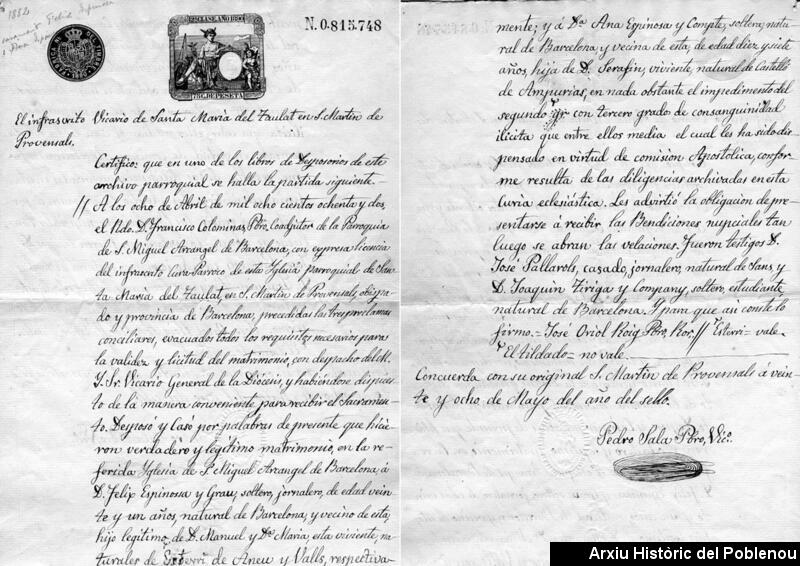 1882
N. 0.815.748
12ª CLASE. AÑO 1890
75 C. DE PESETA
El infrascrito Vicario de Santa Maria del Taulat en S. Martin de
Provensals.
Certifico: que en uno de los libros de Desposorios de este
archivo parroquial se halla la partida siguiente.
// A los ocho de Abril de mil ocho cientos ochenta y dos,
el Rdo. D. Francisco Colominas, Pbro. Coadjutor de la Paroquia
de S. Miguel Arcangel de Barcelona, con expresa licencia
del infrascrito Cura-Parroco de esta Iglesia parroquial de San-
ta Maria del Taulat, en S. Martin de Provensals, obispa-
do y provincia de Barcelona; precedidas las tres proclamas
conciliares, evacuados todos los requisitos necesarios para
la validez y licitud del matrimonio, con despacho del M.
I. Sr. Vicario General de la Diócesis, y habiéndose dispues-
to de la manera conveniente para recibir el Sacramen-
to. Desposó y caso por palabras de presente que hicie-
ron verdadero y legitimo matrimonio, en la re-
ferida Iglesia de S. Miguel Arcangel de Barcelona, á
D. Felix Espinosa y Grau, soltero, jornalero, de edad vein-
te y un años, natural de Barcelona, y vecino de esta,
hijo legitimo, de D. Manuel y Dª Maria, esta viviente, na-
turales de Esterri de Aneu y Valls, respectiva-
mente; y á Dª Ana Espinosa y Compte, soltera, natu-
ral de Barcelona, y vecina de esta, de edad diez y siete
años, hija de D. Serafin, viviente, natural de Castelló
de Ampurias, en nada obstante el impedimento del
segundo con tercero grado de consanguinidad
ilicita que entre ellos media el cual les ha sido dis
pensado en virtud de comision Apostolica, confor-
me resulta de las diligencias archivadas en esta
curia eclesiástica. Les advirtió la obligacion de pre-
sentarse á recibir las Bendiciones nupciales tan
luego se abran las velaciones. Fueron testigos D.
José Pallarols, casado, jornalero, natural de Sans, y
D. Joaquin Tiriga y Company, soltero, estudiante
natural de Barcelona. Y para que asi conste lo
firmo. = José Oriol Roig Pbro. Ror. // Esterri = vale
El tildado = no vale.
Concuerda con su original S. Martin de Provensals á vein-
te y ocho de Mayo del año del sello.
Pedro Sala Pbro, Vicº.
Arxiu Històric del Poblenou